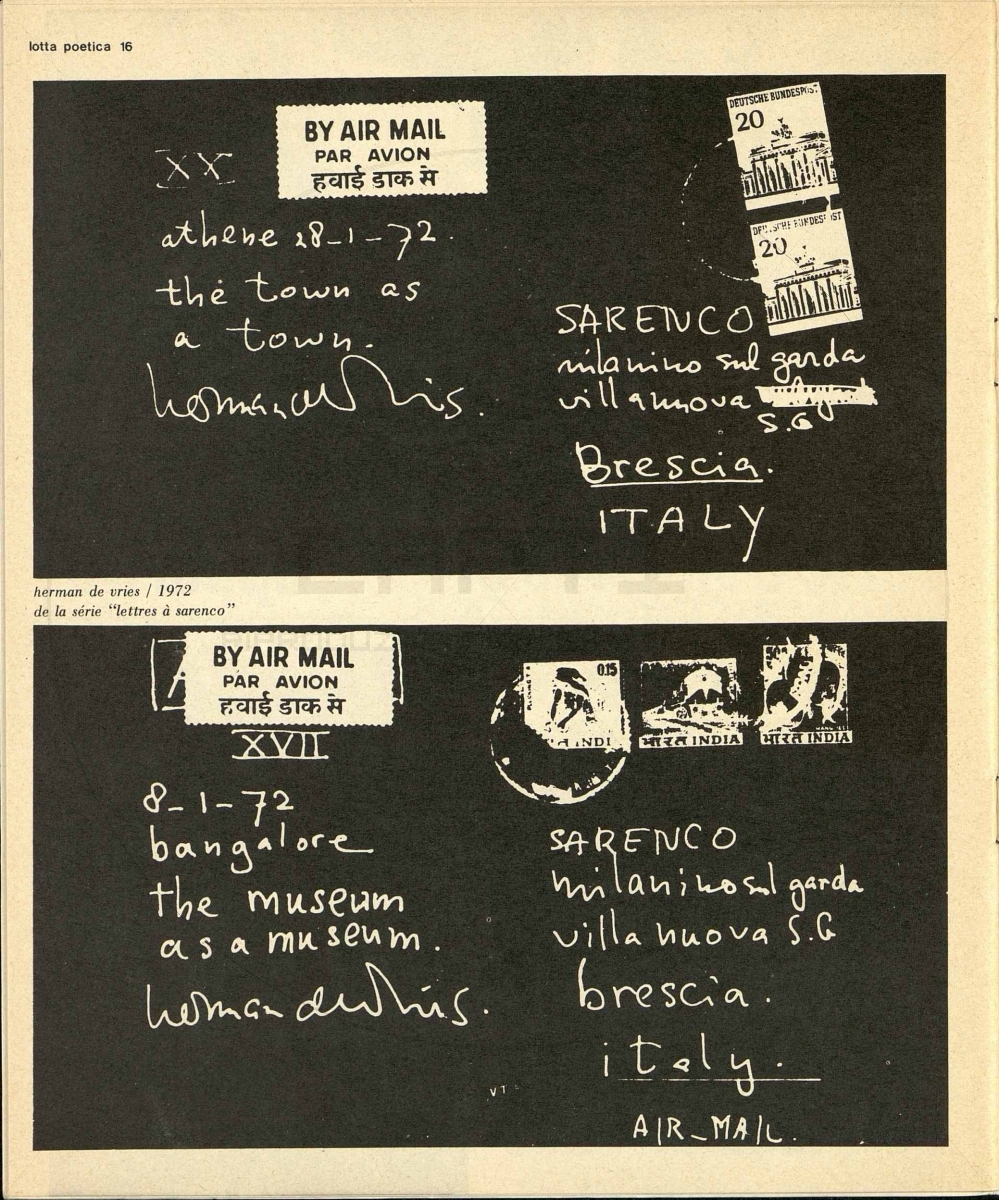 lotta poetica 16
BY AIR MAIL
PAR AVION
हवाई डाक से
XX
athene 28-1-72.
the town as
a town.
herman de vries.
DEUTSCHE BUNDESPOST
20
DEUTSCHE BUNDESPOST
20
SARENCO
milanino sul garda
villanuova
S.G
Brescia.
ITALY
herman de vries / 1972
de la série “lettres à sarenco”
BY AIR MAIL
PAR AVION
हवाई डाक से
XVII
8-1-72
bangalore
the museum
as a museum.
herman de vries.
0.15
भारत INDIA
भारत INDIA
SARENCO
milanino sul garda
villa nuova S.G
brescia.
italy.
AIR_MAIL.